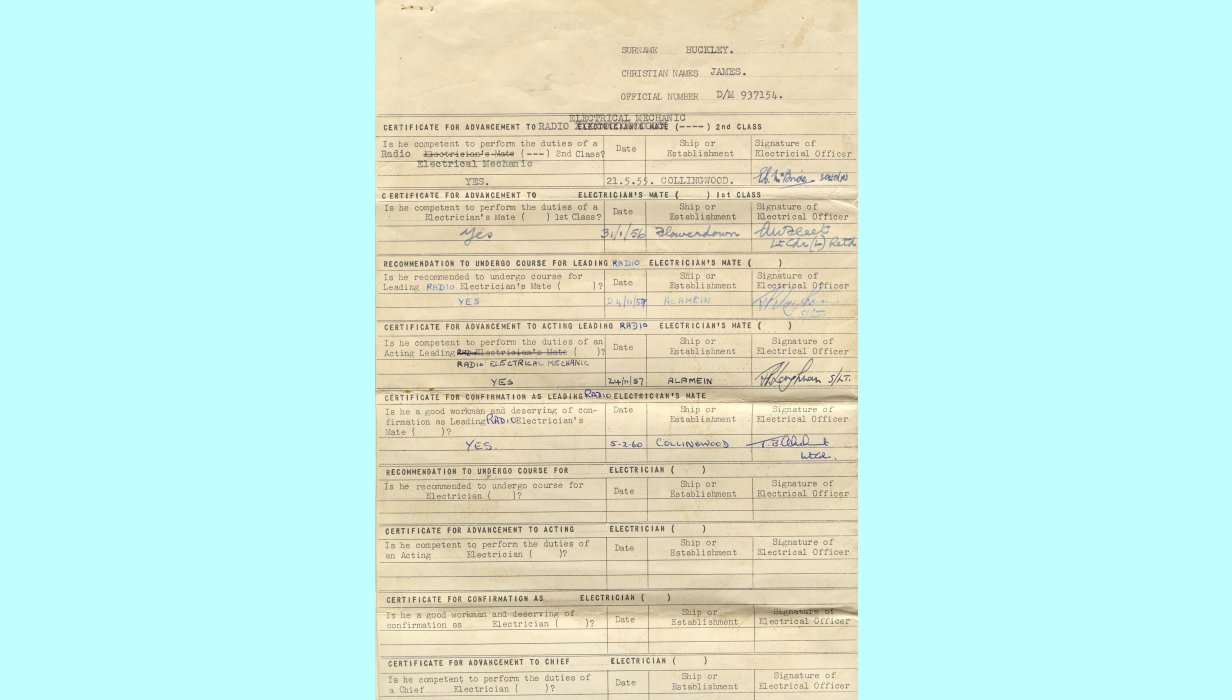 SURNAME BUCKLEY.
CHRISTIAN NAMES JAMES.
OFFICIAL NUMBER D/M 937154.
ELECTRICAL MECHANIC
CERTIFICATE FOR ADVANCEMENT TO RADIO ELECTRICIAN'S MATE (----) 2nd CLASS
Is he competent to perform the duties of a
Radio Electrician's Mate (---) 2nd Class?
Electrical Mechanic
Date
Ship or
Establishment
Signature of
Electricial Officer
YES. 21.5.55. COLLINGWOOD.
CERTIFICATE FOR ADVANCEMENT TO ELECTRICIAN'S MATE ( ) 1st CLASS
Is he competent to perform the duties of a
Electrician's Mate ( ) 1st Class?
Date
Ship or
Establishment
Signature of
Electrical Officer
Yes 31/1/56 Flowerdown
Lt Cdr (L) Retd
RECOMMENDATION TO UNDERGO COURSE FOR LEADING RADIO ELECTRICIAN'S MATE ( )
Is he recommended to undergo course for
Leading RADIO Electrician's Mate ( )?
Date
Ship or
Establishment
Signature of
Electrical Officer
YES 24/11/57 ALAMEIN
S/LT.
CERTIFICATE FOR ADVANCEMENT TO ACTING LEADING RADIO ELECTRICIAN'S MATE ( )
Is he competent to perform the duties of an
Acting Leading Radio Electrician's Mate ( )?
RADIO ELECTRICAL MECHANIC
Date
Ship or
Establishment
Signature of
Electrical Officer
YES 24/11/57 ALAMEIN S/LT.
CERTIFICATE FOR CONFIRMATION AS LEADING RADIO ELECTRICIAN'S MATE
Is he a good workman and deserving of con-
firmation as Leading RADIO Electrician's
Mate ( )?
Date
Ship or
Establishment
Signature of
Electrical Officer
YES. 5-2-60 COLLINGWOOD
RECOMMENDATION TO UNDERGO COURSE FOR ELECTRICIAN ( )
Is he recommended to undergo course for
Electrician ( )?
Date
Ship or
Establishment
Signature of
Electrical Officer
CERTIFICATE FOR ADVANCEMENT TO ACTING ELECTRICIAN ( )
Is he competent to perform the duties of
an Acting Electrician ( )?
Date
Ship or
Establishment
Signature of
Electrical Officer
CERTIFICATE FOR CONFIRMATION AS ELECTRICIAN ( )
Is he a good workman and deserving of
confirmation as Electrician ( )?
Date
Ship or
Establishment
Signature of
Electrical Officer
CERTIFICATE FOR ADVANCEMENT TO CHIEF ELECTRICIAN ( )
Is he competent to perform the duties of
a Chief Electrician ( )?
Date
Ship or
Establishment
Signature of
Electrical Officer